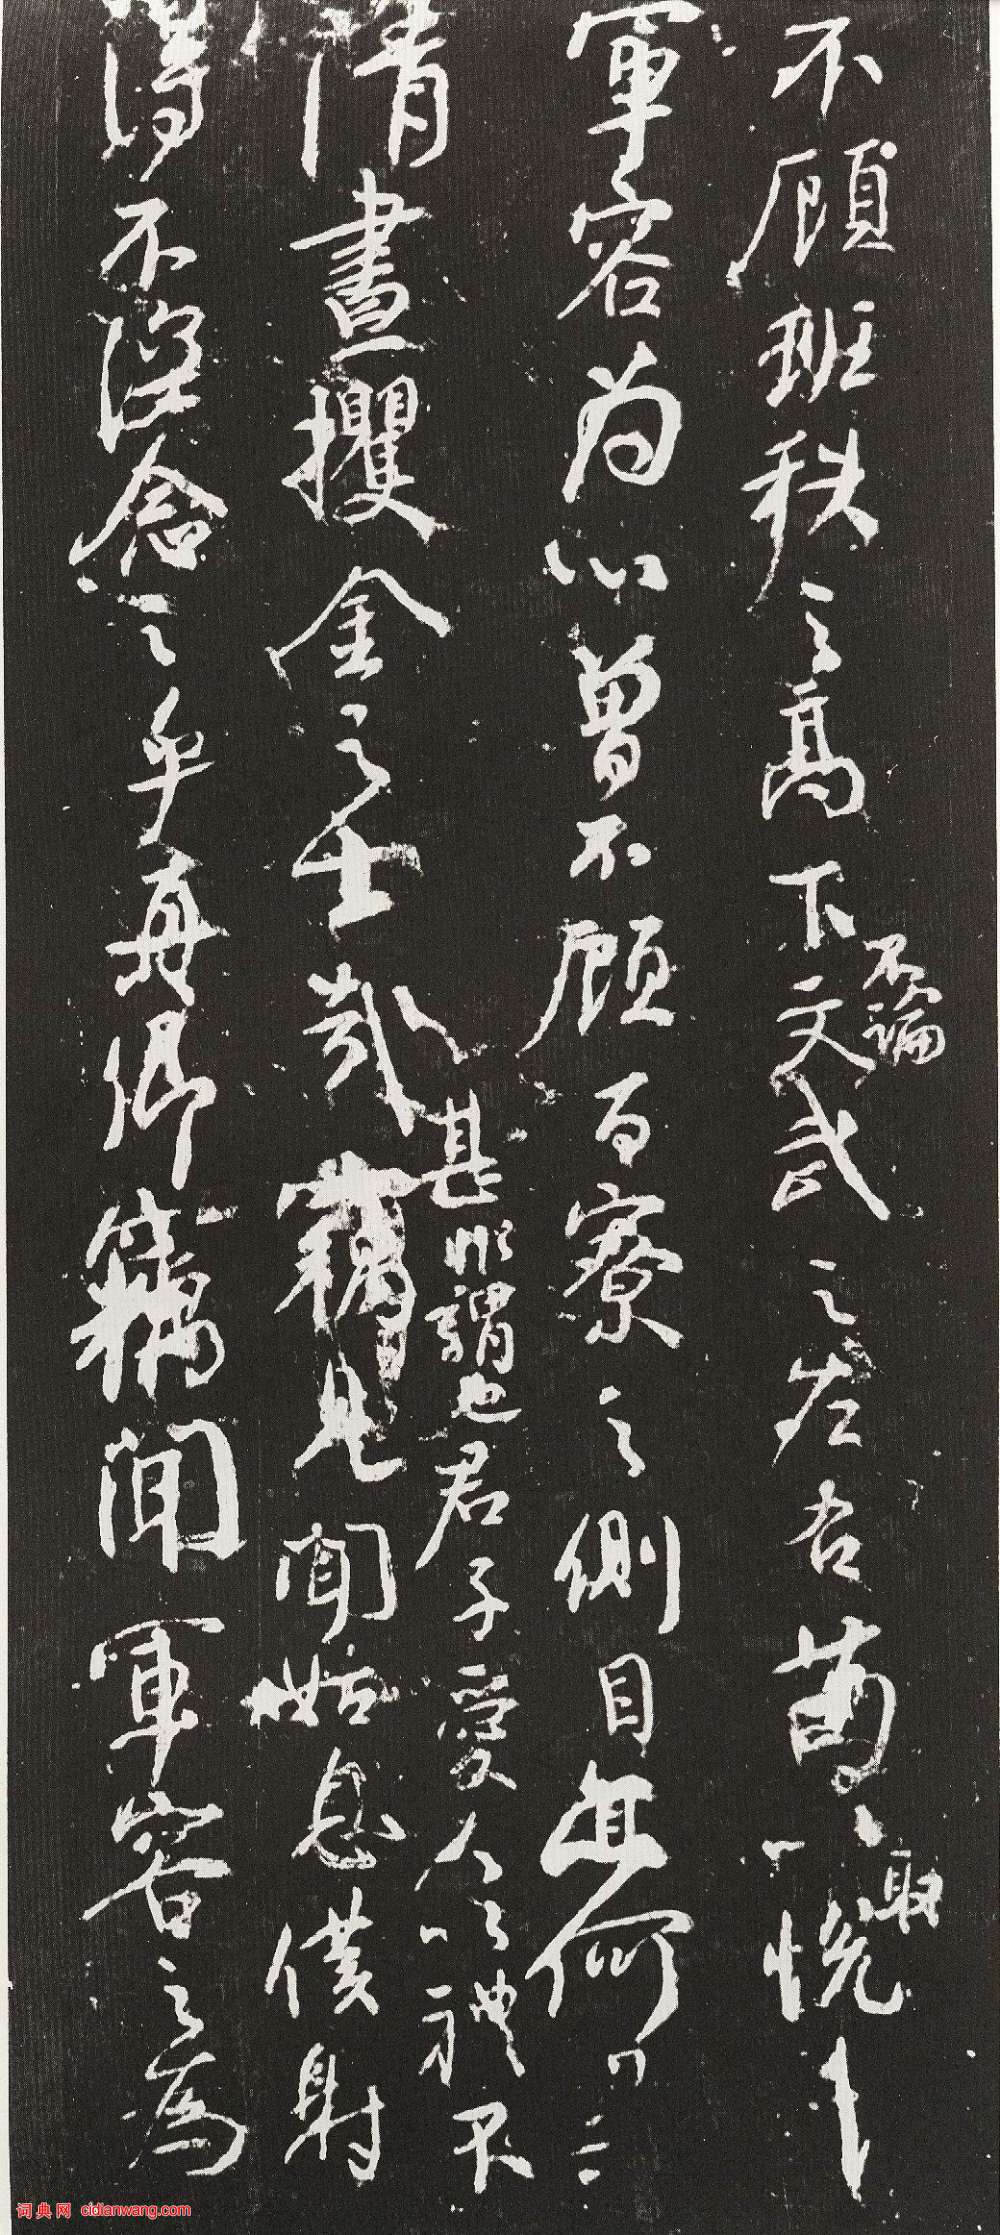 不顧班秩之高下文武之左右苟以悅
不論
取
軍容為心曾不顧百寮之側目亦何
清晝攫金之士哉竊見聞姑息僕射
甚非謂也君子愛人以禮不
得不深念之乎真卿竊聞軍容之為
词典网 cidianwang.com